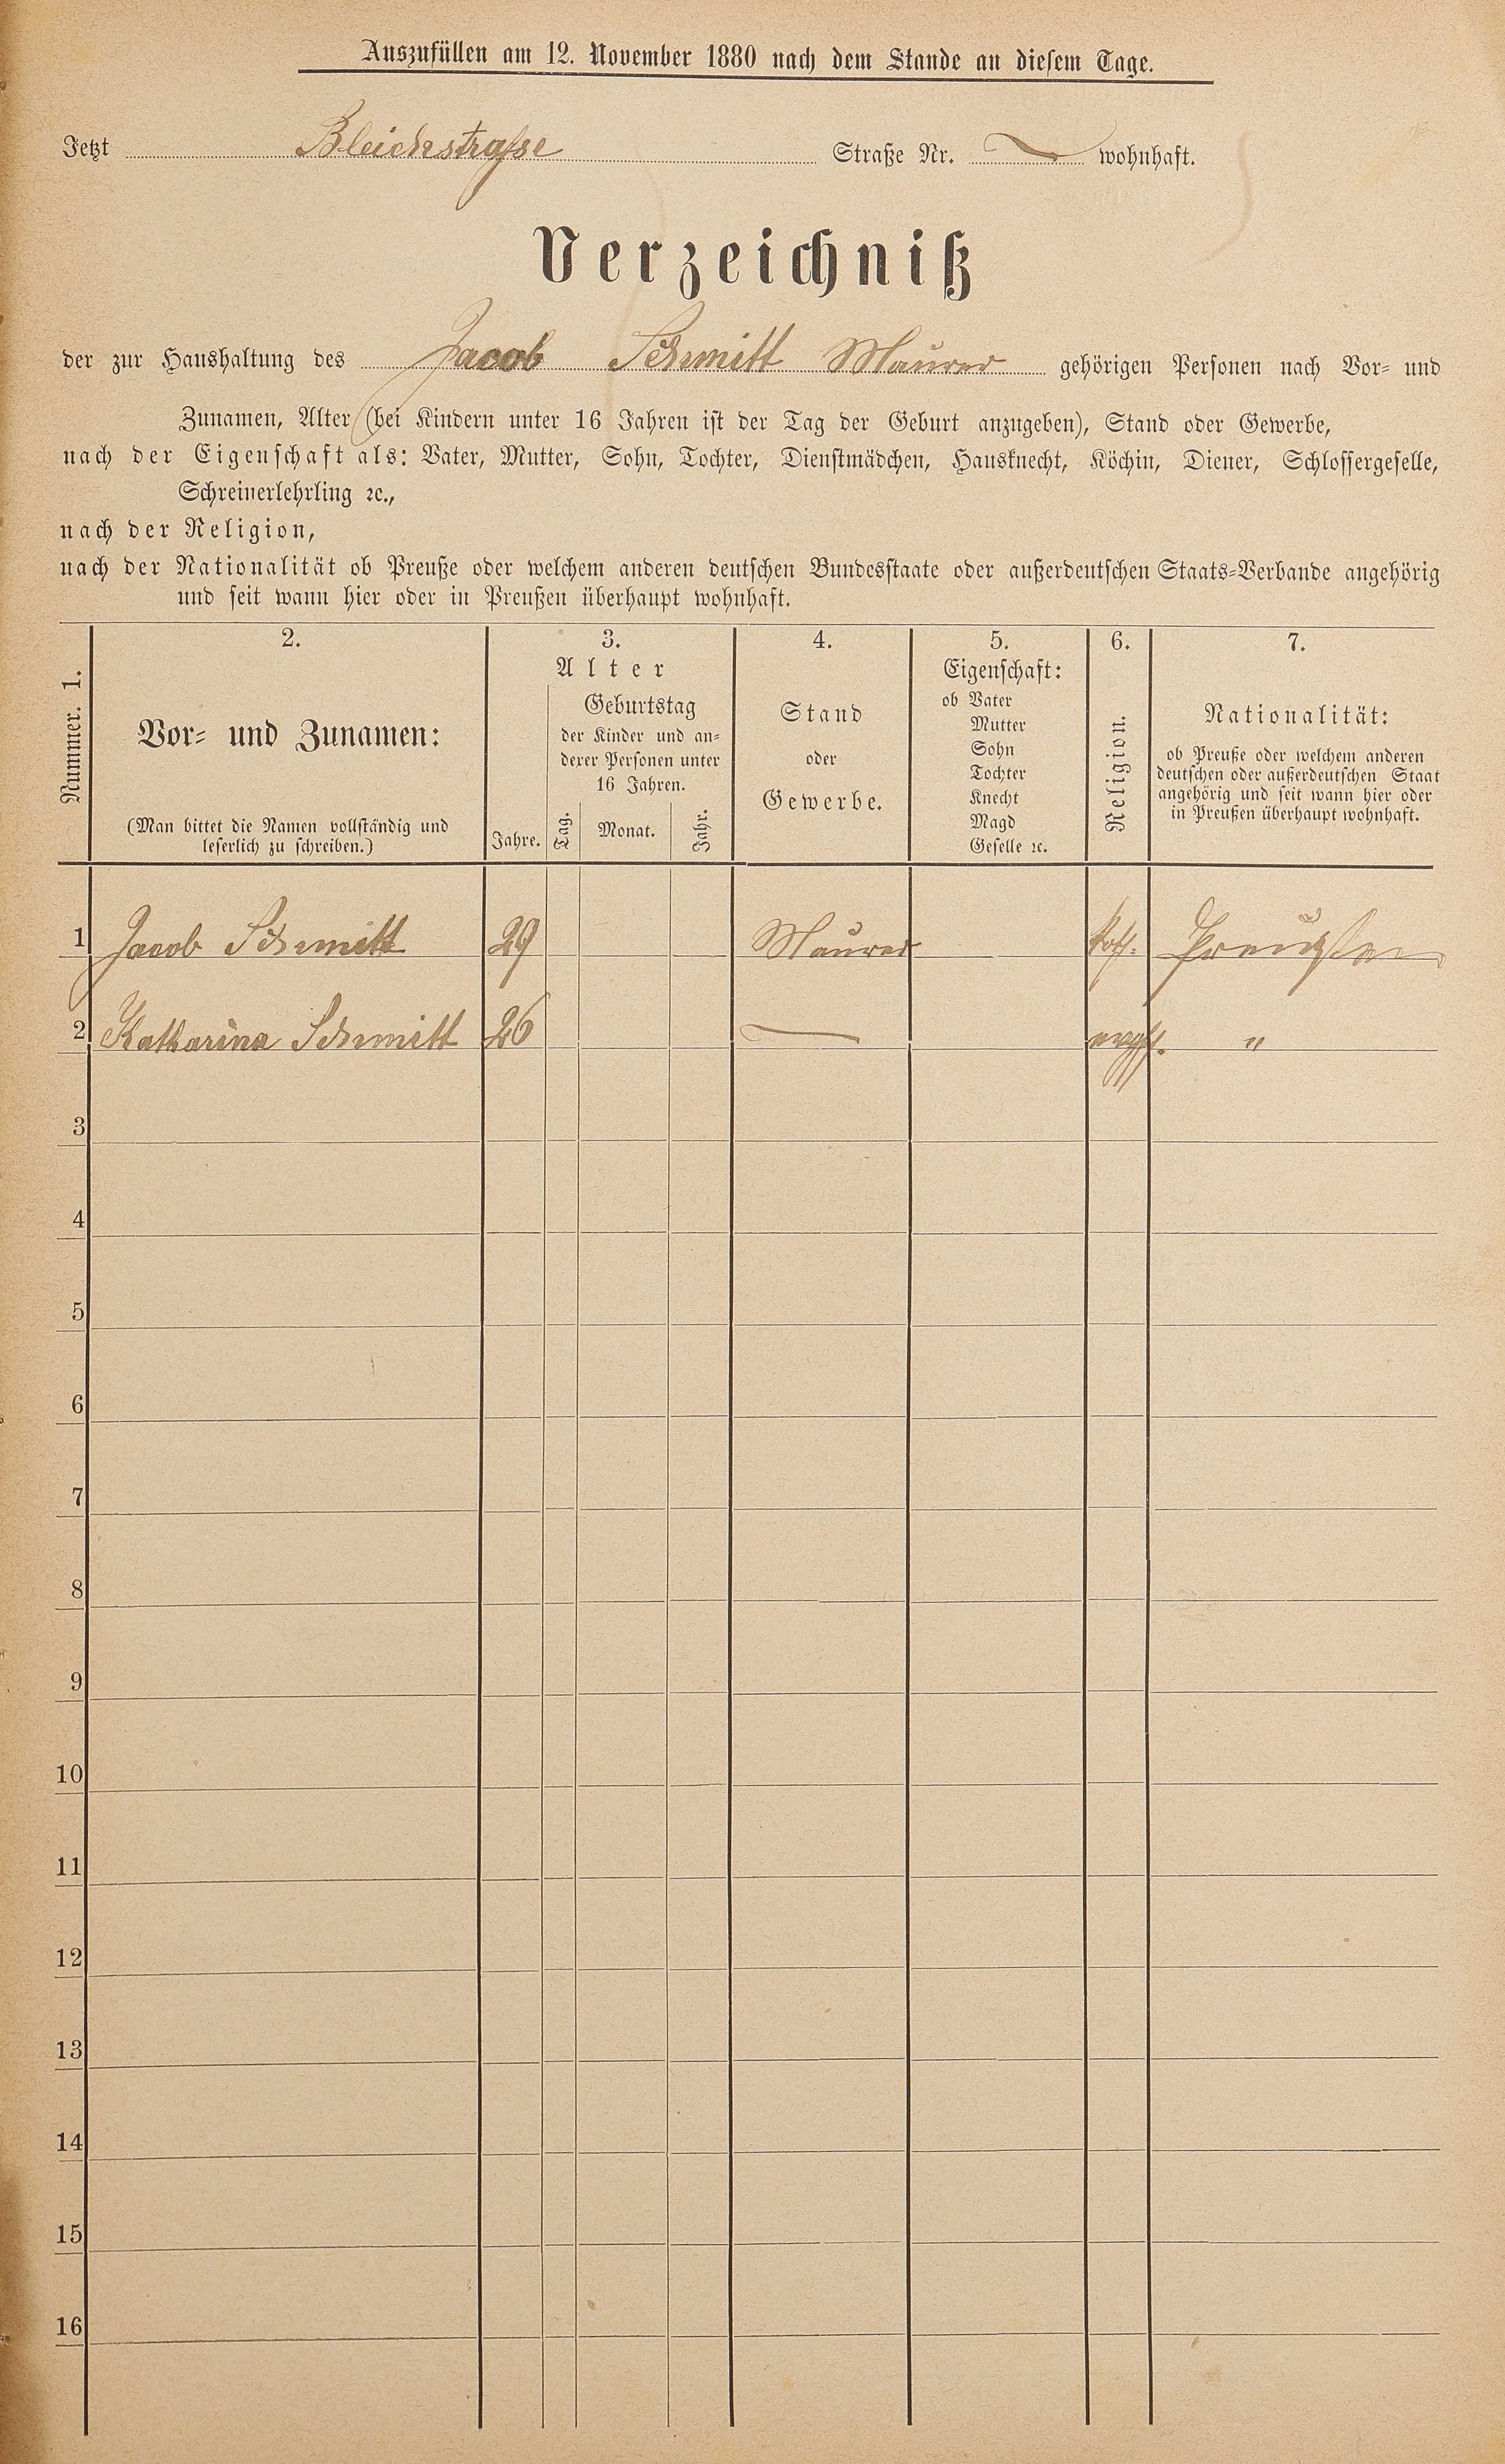 Auszufüllen am 12. November 1880 nach dem Stande an diesem Tage.
Jetzt Bleichstraße Straße Nr. wohnhaft.
Verzeichniß
der zur Haushaltung des Jacob Schmitt Maurer gehörigen Personen nach Vor- und
Zunamen, Alter (bei Kindern unter 16 Jahren ist der Tag der Geburt anzugeben), Stand oder Gewerbe,
nach der Eigenschaft als: Vater, Mutter, Sohn, Tochter, Dienstmädchen, Hausknecht, Köchin, Diener, Schlossergeselle,
Schreinerlehrling ꝛc.,
nach der Religion,
nach der Nationalität ob Preuße oder welchem anderen deutschen Bundesstaate oder außerdeutschen Staats-Verbande angehörig
und seit wann hier oder in Preußen überhaupt wohnhaft.
Nummer. 1.
2.
Vor- und Zunamen:
(Man bittet die Namen vollständig und
leserlich zu schreiben.)
3.
Alter
Jahre.
Geburtstag
der Kinder und an-
derer Personen unter
16 Jahren.
Tag. Monat. Jahr.
4.
Stand
oder
Gewerbe.
5.
Eigenschaft:
ob Vater
Mutter
Sohn
Tochter
Knecht
Magd
Geselle ꝛc.
6.
Religion.
7.
Nationalität:
ob Preuße oder welchem anderen
deutschen oder außerdeutschen Staat
angehörig und seit wann hier oder
in Preußen überhaupt wohnhaft.
1 Jacob Schmitt 29 Maurer kath. Preußen
2 Katharina Schmitt 26 — "
3
4
5
6
7
8
9
10
11
12
13
14
15
16